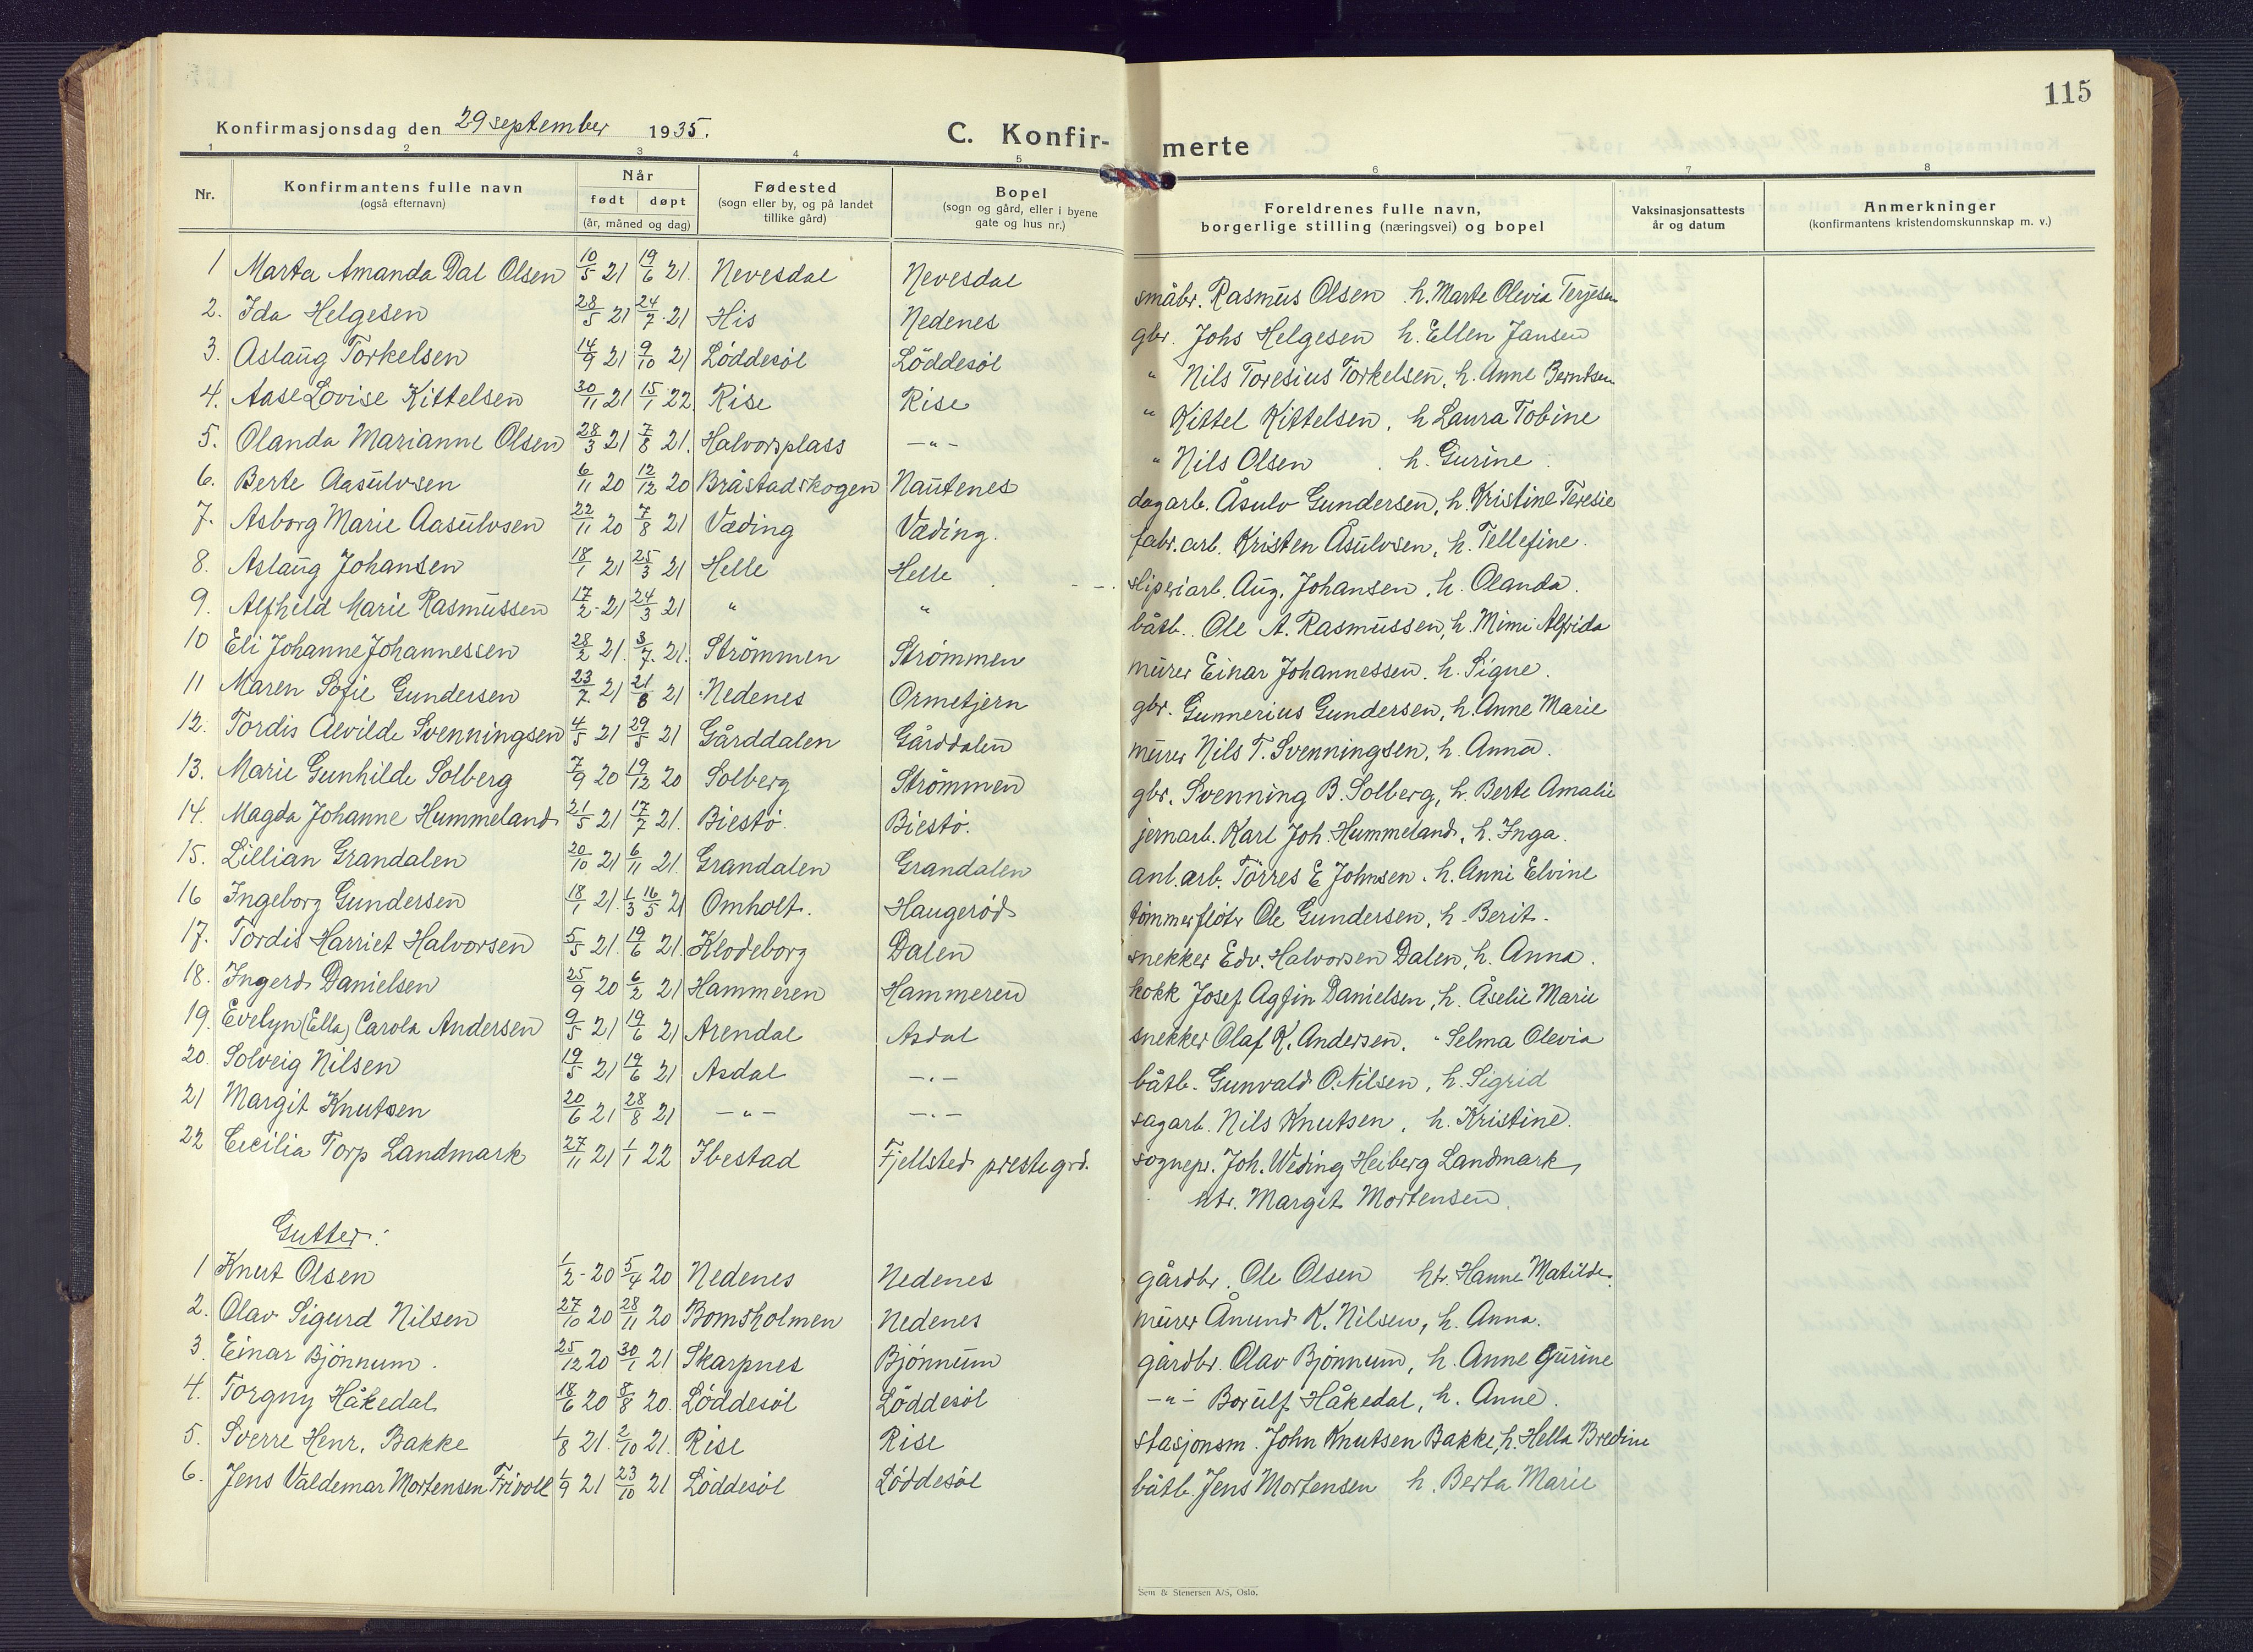 115
Konfirmasjonsdag den 29 september 1935. C. Konfir- merte
1 2 3 4 5 6 7 8
Nr. Konfirmantens fulle navn (også efternavn) Når født døpt (år, måned og dag) Fødested (sogn eller by, og på landet tillike gård) Bopel (sogn og gård, eller i byene gate og hus nr.) Foreldrenes fulle navn, borgerlige stilling (næringsvei) og bopel Vaksinasjonsattests år og datum Anmerkninger (konfirmantens kristendomskunnskap m. v.)
1 Marta Amanda Dal Olsen 10/5 21 19/6 21. Nevesdal Nevesdal småbr. Rasmus Olsen h. Marte Olevia Terjesen
2. Ida Helgesen 28/5 21 24/7 21 His Nedenes gbr. Johs Helgesen h. Ellen Jansen
3. Aslaug Torkelsen 14/9 21 9/10 21 Løddesøl Løddesøl " Nils Toresius Torkelsen, h. Anne Berntsen
4. Aase Lovise Kittelsen 30/11 21 15/1 22 Rise Rise " Kittel Kittelsen, h Laura Tobine
5. Olanda Marianne Olsen 28/3 21 7/8 21. Halvorsplass -"- " Nils Olsen h. Gurine
6. Berte Aasulvsen 6/11 20 12/12 20 Bråstadskogen Nautenes dagarb. Åsulv Gundersen, h. Kristine Teresie
7. Asborg Marie Aasulvsen 22/11 20 7/8 21 Væding Væding. fabr.arb. Kristen Åsulvsen, h. Tellefine.
8. Aslaug Johansen 18/1 21 25/3 21 Helle Helle sliperiarb. Aug. Johansen, h. Olanda.
9. Alfhild Marie Rasmussen 17/2 21 24/3 21 " " båtb. Ole A. Rasmussen, h. Mimi Alfrida
10 Eli Johanne Johannessen 28/2 21. 3/7 21. Strømmen Strømmen murer Einar Johannessen. h. Signe.
11 Maren Sofie Gundersen 23/7 21 21/8 21 Nedenes Ormetjern gbr. Gunnerius Gundersen, h. Anne Marie
12. Tordis Alvilde Svenningsen 4/5 21 29/5 21 Gårddalen Gårddalen murer Nils T. Svenningsen, h. Anna.
13. Marie Gunhilde Solberg 7/9 20 19/12 20 Solberg Strømmen gbr. Svenning B. Solberg, h. Berte Amalie
14. Magda Johanne Hummeland 21/5 21 17/7 21. Biestø Biestø. jernarb. Karl Joh. Hummeland, h. Inga.
15. Lillian Grandalen 20/10 21 6/11 21. Grandalen Grandalen anl.arb. Tørres E Johnsen. h. Anni Elvine
16 Ingeborg Gundersen 18/1 21. 1/3 16/5 21 Omholt. Haugerød tømmerfløter Ole Gundersen, h. Berit.
17. Tordis Harriet Halvorsen 5/5 21. 19/6 21. Klodeborg Dalen snekker Edv. Halvorsen Dalen, h. Anna.
18. Ingerd Danielsen 25/9 20 6/2 21 Hammeren Hammeren kokk Josef Agfin Danielsen, h. Åselie Marie
19. Evelyn (Ella) Carola Andersen 9/5 21 19/6 21 Arendal Asdal snekker Olaf K. Andersen. " Selma Olevia
20. Solveig Nilsen 19/5 21 19/6 21 Asdal -"- båtb. Gunvald O. Nilsen, h. Sigrid
21 Margit Knutsen 20/6 21 28/8 21 -"- -"- sagarb. Nils Knutsen, h. Kristine.
22 Cecilia Torp Landmark 27/11 21 1/1 22 Ibestad Fjellsted prestegrd. sognepr. Joh. Weding Heiberg Landmark,
htr. Margit Mortensen
Gutter:
1 Knut Olsen 1/2 20 5/4 20 Nedenes Nedenes gårdbr. Ole Olsen htr. Hanne Matilde.
2. Olav Sigurd Nilsen 27/10 20 28/11 20 Bomsholmen Nedenes murer Ånund K. Nilsen, h. Anna.
3. Einar Bjønnum. 25/12 20 30/1 21 Skarpnes Bjønnum gårdbr. Olav Bjønnum, h. Anne Gurine
4. Torgny Håkedal 18/6 20 8/8 20. Løddesøl Løddesøl -"- Borulf Håkedal, h. Anne.
5. Sverre Henr. Bakke 1/8 21. 2/10 21. Rise Rise stasjonsm. John Knutsen Bakke, h. Hella Bredine
6. Jens Valdemar Mortensen Frivoll 1/9 21 23/10 21 Løddesøl Løddesøl båtb. Jens Mortensen h. Berta Marie
Sem & Stenersen A/S, Oslo.